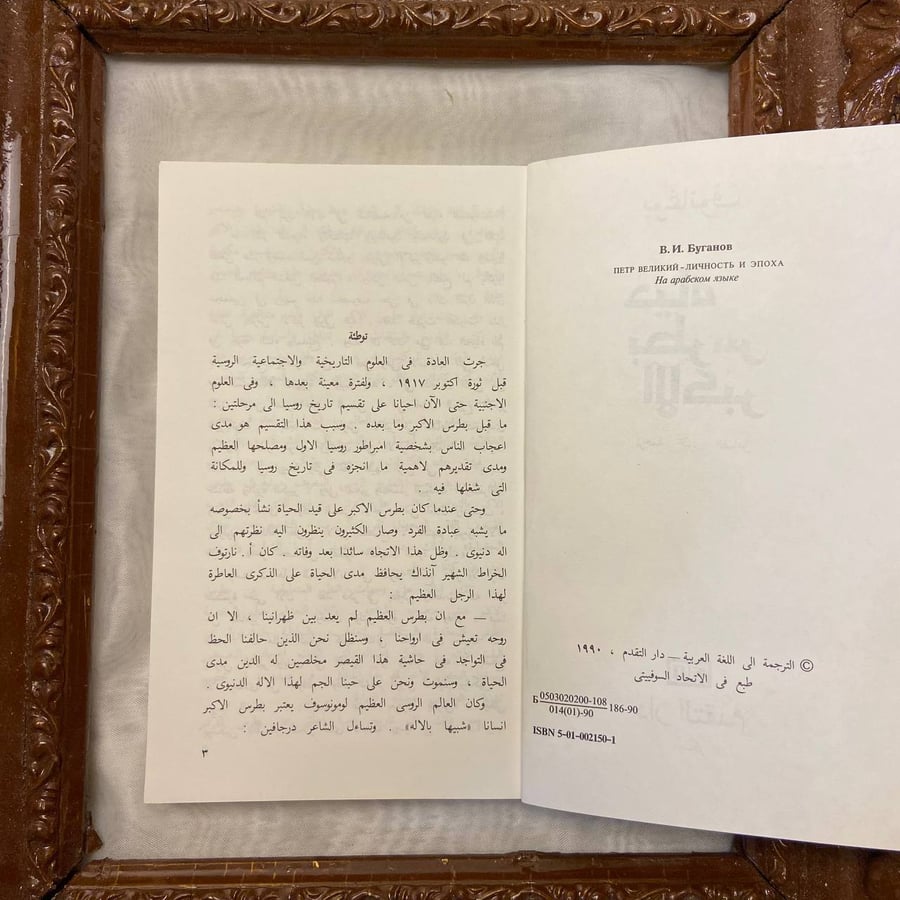 В. И. Буганов
ПЕТР ВЕЛИКИЙ–ЛИЧНОСТЬ И ЭПОХА
На арабском языке
© الترجمة الى اللغة العربية — دار التقدم ، ١٩٩٠
طبع فى الاتحاد السوفييتى
Б 0503020200-108 186-90
014(01)-90
ISBN 5-01-002150-1
توطئة
جرت العادة فى العلوم التاريخية والاجتماعية الروسية
قبل ثورة اكتوبر ١٩١٧ ، ولفترة معينة بعدها ، وفى العلوم
الاجنبية حتى الآن احيانا على تقسيم تاريخ روسيا الى مرحلتين :
ما قبل بطرس الاكبر وما بعده . وسبب هذا التقسيم هو مدى
اعجاب الناس بشخصية امبراطور روسيا الاول ومصلحها العظيم
ومدى تقديرهم لاهمية ما انجزه فى تاريخ روسيا وللمكانة
التى شغلها فيه .
وحتى عندما كان بطرس الاكبر على قيد الحياة نشأ بخصوصه
ما يشبه عبادة الفرد وصار الكثيرون ينظرون اليه نظرتهم الى
اله دنيوى . وظل هذا الاتجاه سائدا بعد وفاته . كان أ . نارتوف
الخراط الشهير آنذاك يحافظ مدى الحياة على الذكرى العاطرة
لهذا الرجل العظيم :
— مع ان بطرس العظيم لم يعد بين ظهرانينا ، الا ان
روحه تعيش فى ارواحنا ، وسنظل نحن الذين حالفنا الحظ
فى التواجد فى حاشية هذا القيصر مخلصين له الدين مدى
الحياة ، وسنموت ونحن على حبنا الجم لهذا الاله الدنيوى .
وكان العالم الروسى العظيم لومونوسوف يعتبر بطرس الاكبر
انسانا «شبيها بالاله» . وتساءل الشاعر درجافين :
٣